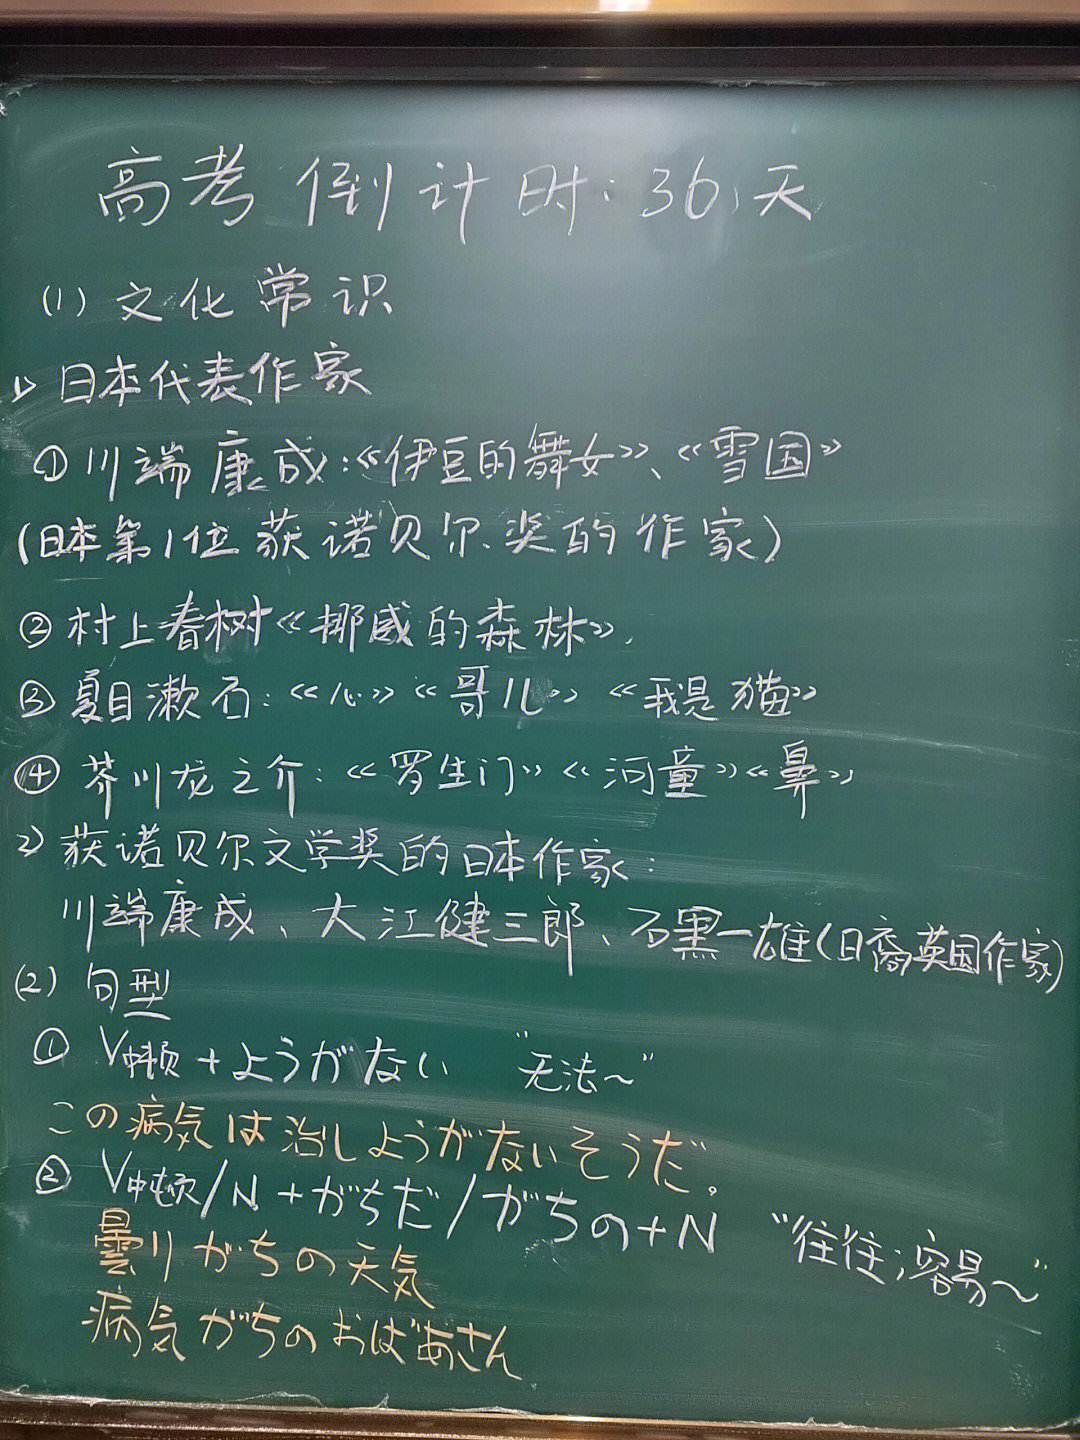 高考倒计时:36天
(1) 文化常识
1> 日本代表作家
①川端康成:《伊豆的舞女》、《雪国》
(日本第1位获诺贝尔奖的作家)
②村上春树《挪威的森林》.
③夏目漱石:《心》《哥儿》《我是猫》
④芥川龙之介:《罗生门》《河童》《鼻》
2> 获诺贝尔文学奖的日本作家:
川端康成、大江健三郎、石黑一雄(日裔英国作家)
(2) 句型
① V中顿+ようがない "无法~"
この病気は治しようがないそうだ。
② V中顿/N+がちだ/がちの+N "往往;容易~"
曇りがちの天気
病気がちのおばあさん